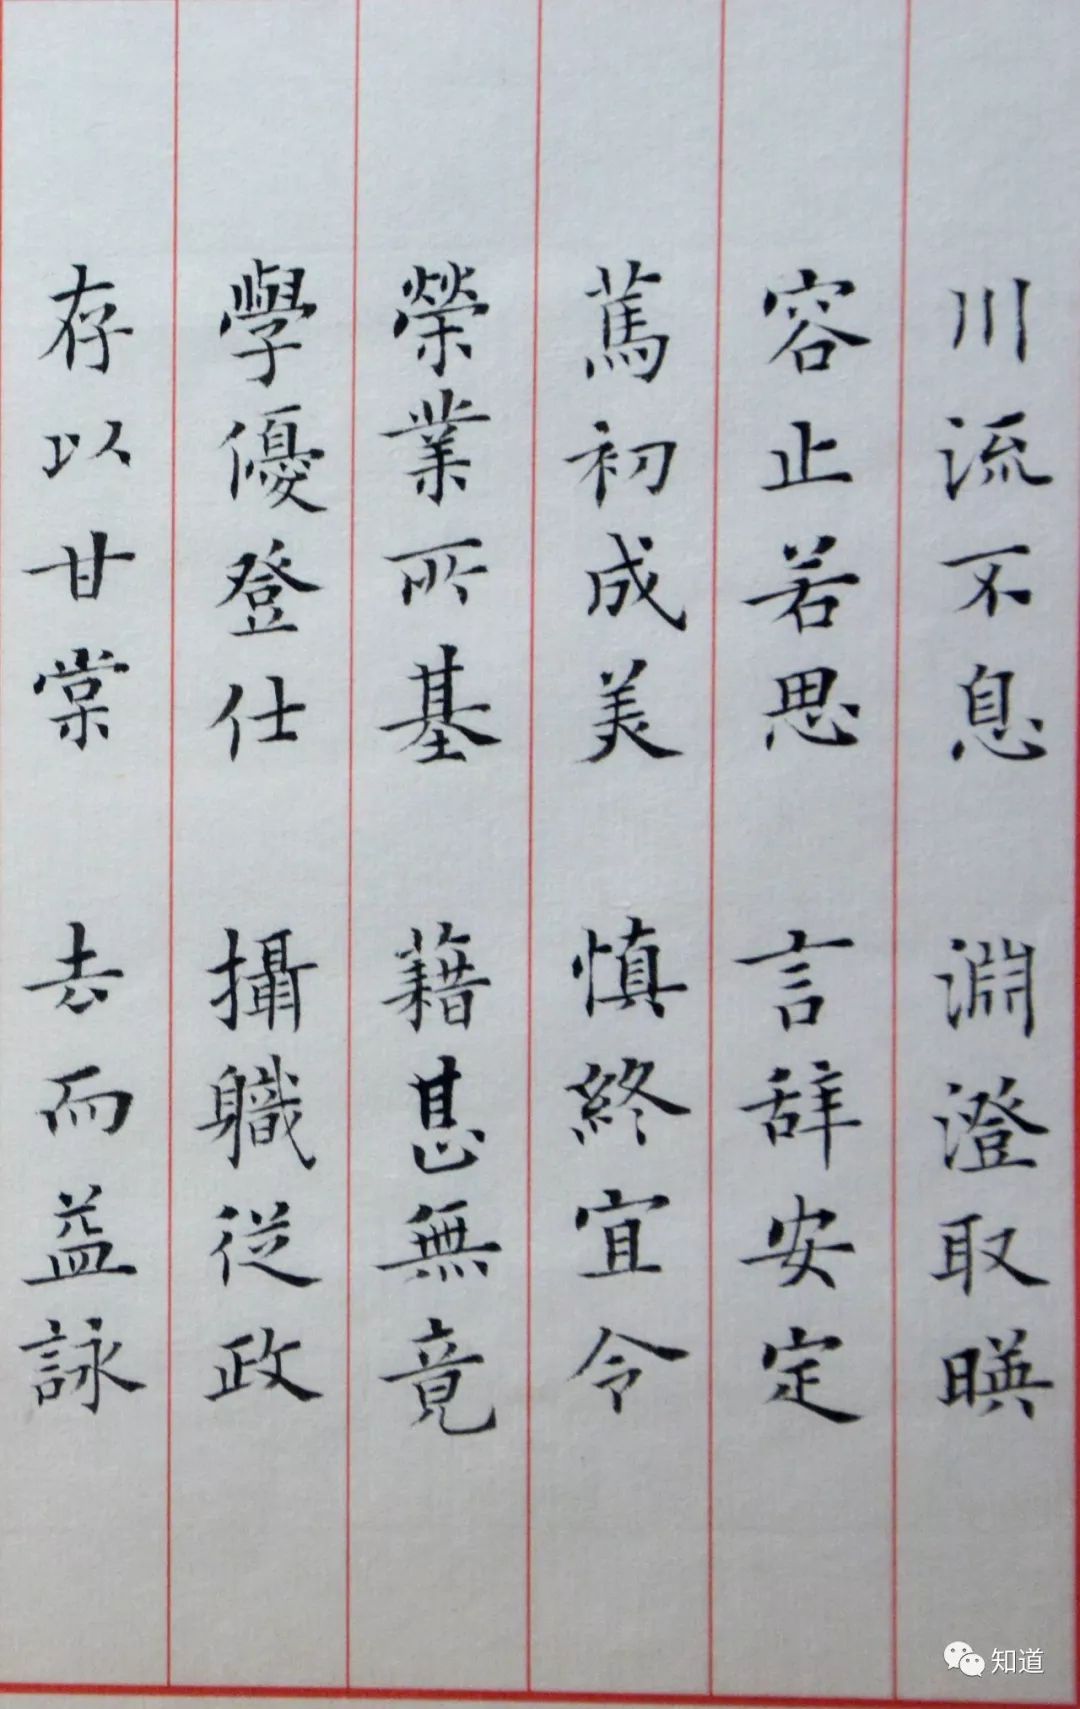 川流不息 淵澄取暎
容止若思 言辞安定
篤初成美 慎終宜令
榮業所基 藉甚無竟
學優登仕 攝職從政
存以甘棠 去而益詠
知道